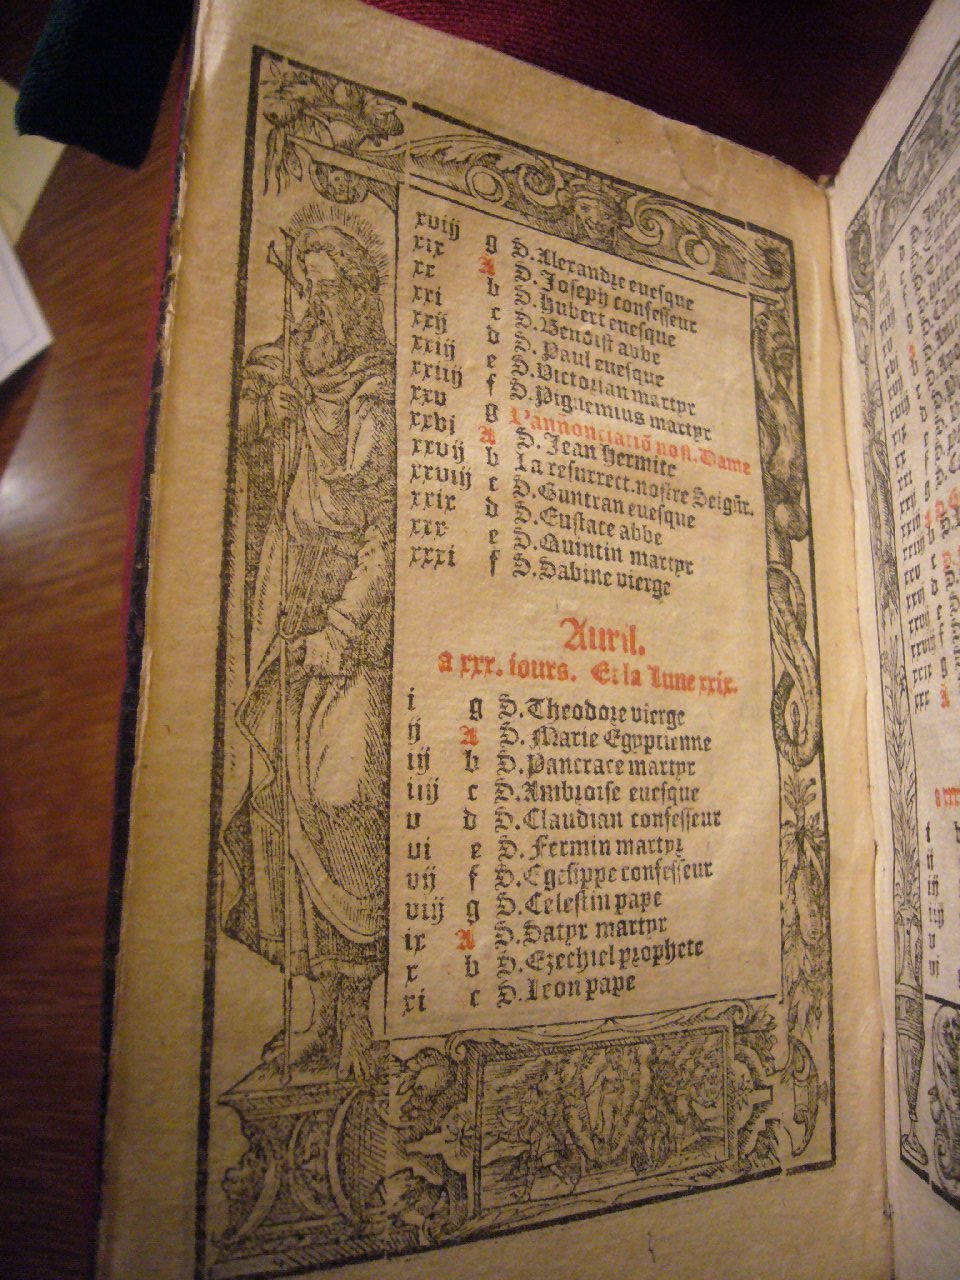 xviij g S. Alexandre euesque
xix A S. Joseph confesseur
xx b S. Hubert euesque
xxi c S. Benoist abbe
xxij d S. Paul euesque
xxiij e S. Victorian martyr
xxiiij f S. Pigmemius martyr
xxv g L'annonciatiō nost. Dame
xxvj A S. Jean hermite
xxvij b La resurrect. nostre Seigñr.
xxviij c S. Guntran euesque
xxix d S. Eustace abbe
xxx e S. Quintin martyr
xxxi f S. Sabine vierge
Auril.
a xxx. iours. Et la Lune xxix.
i g S. Theodore vierge
ij A S. Marie Egyptienne
iij b S. Pancrace martyr
iiij c S. Ambroise euesque
v d S. Claudian confesseur
vi e S. Fermin martyr
vij f S. Egesippe confesseur
viij g S. Celestin pape
ix A S. Satyr martyr
x b S. Ezechiel prophete
xi c S. Leon pape